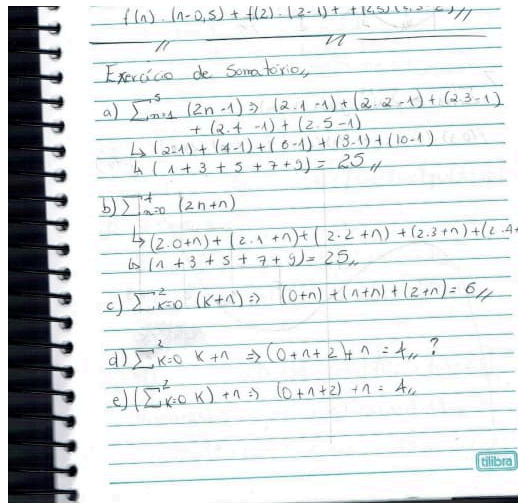 f(1) . (1-0,5) + f(2) . (2-1) +
Exercício de Somatório,,
a) ∑⁵n=1 (2n-1) ⇒ (2.1-1)+(2.2-1)+(2.3-1)
+ (2.4-1)+(2.5-1)
↳ (2-1)+(4-1)+(6-1)+(8-1)+(10-1)
↳ (1+3+5+7+9)= 25,,
b) ∑⁴n=0 (2n+1)
↳ (2.0+1)+(2.1+1)+(2.2+1)+(2.3+1)+(2.4+
↳ (1+3+5+7+9)= 25,,
c) ∑²k=0 (k+1) ⇒ (0+1)+(1+1)+(2+1)= 6,,
d) ∑²k=0 k+1 ⇒ (0+1+2)+1 = 4,, ?
e) (∑²k=0 k)+1 ⇒ (0+1+2)+1 = 4,,
tilibra